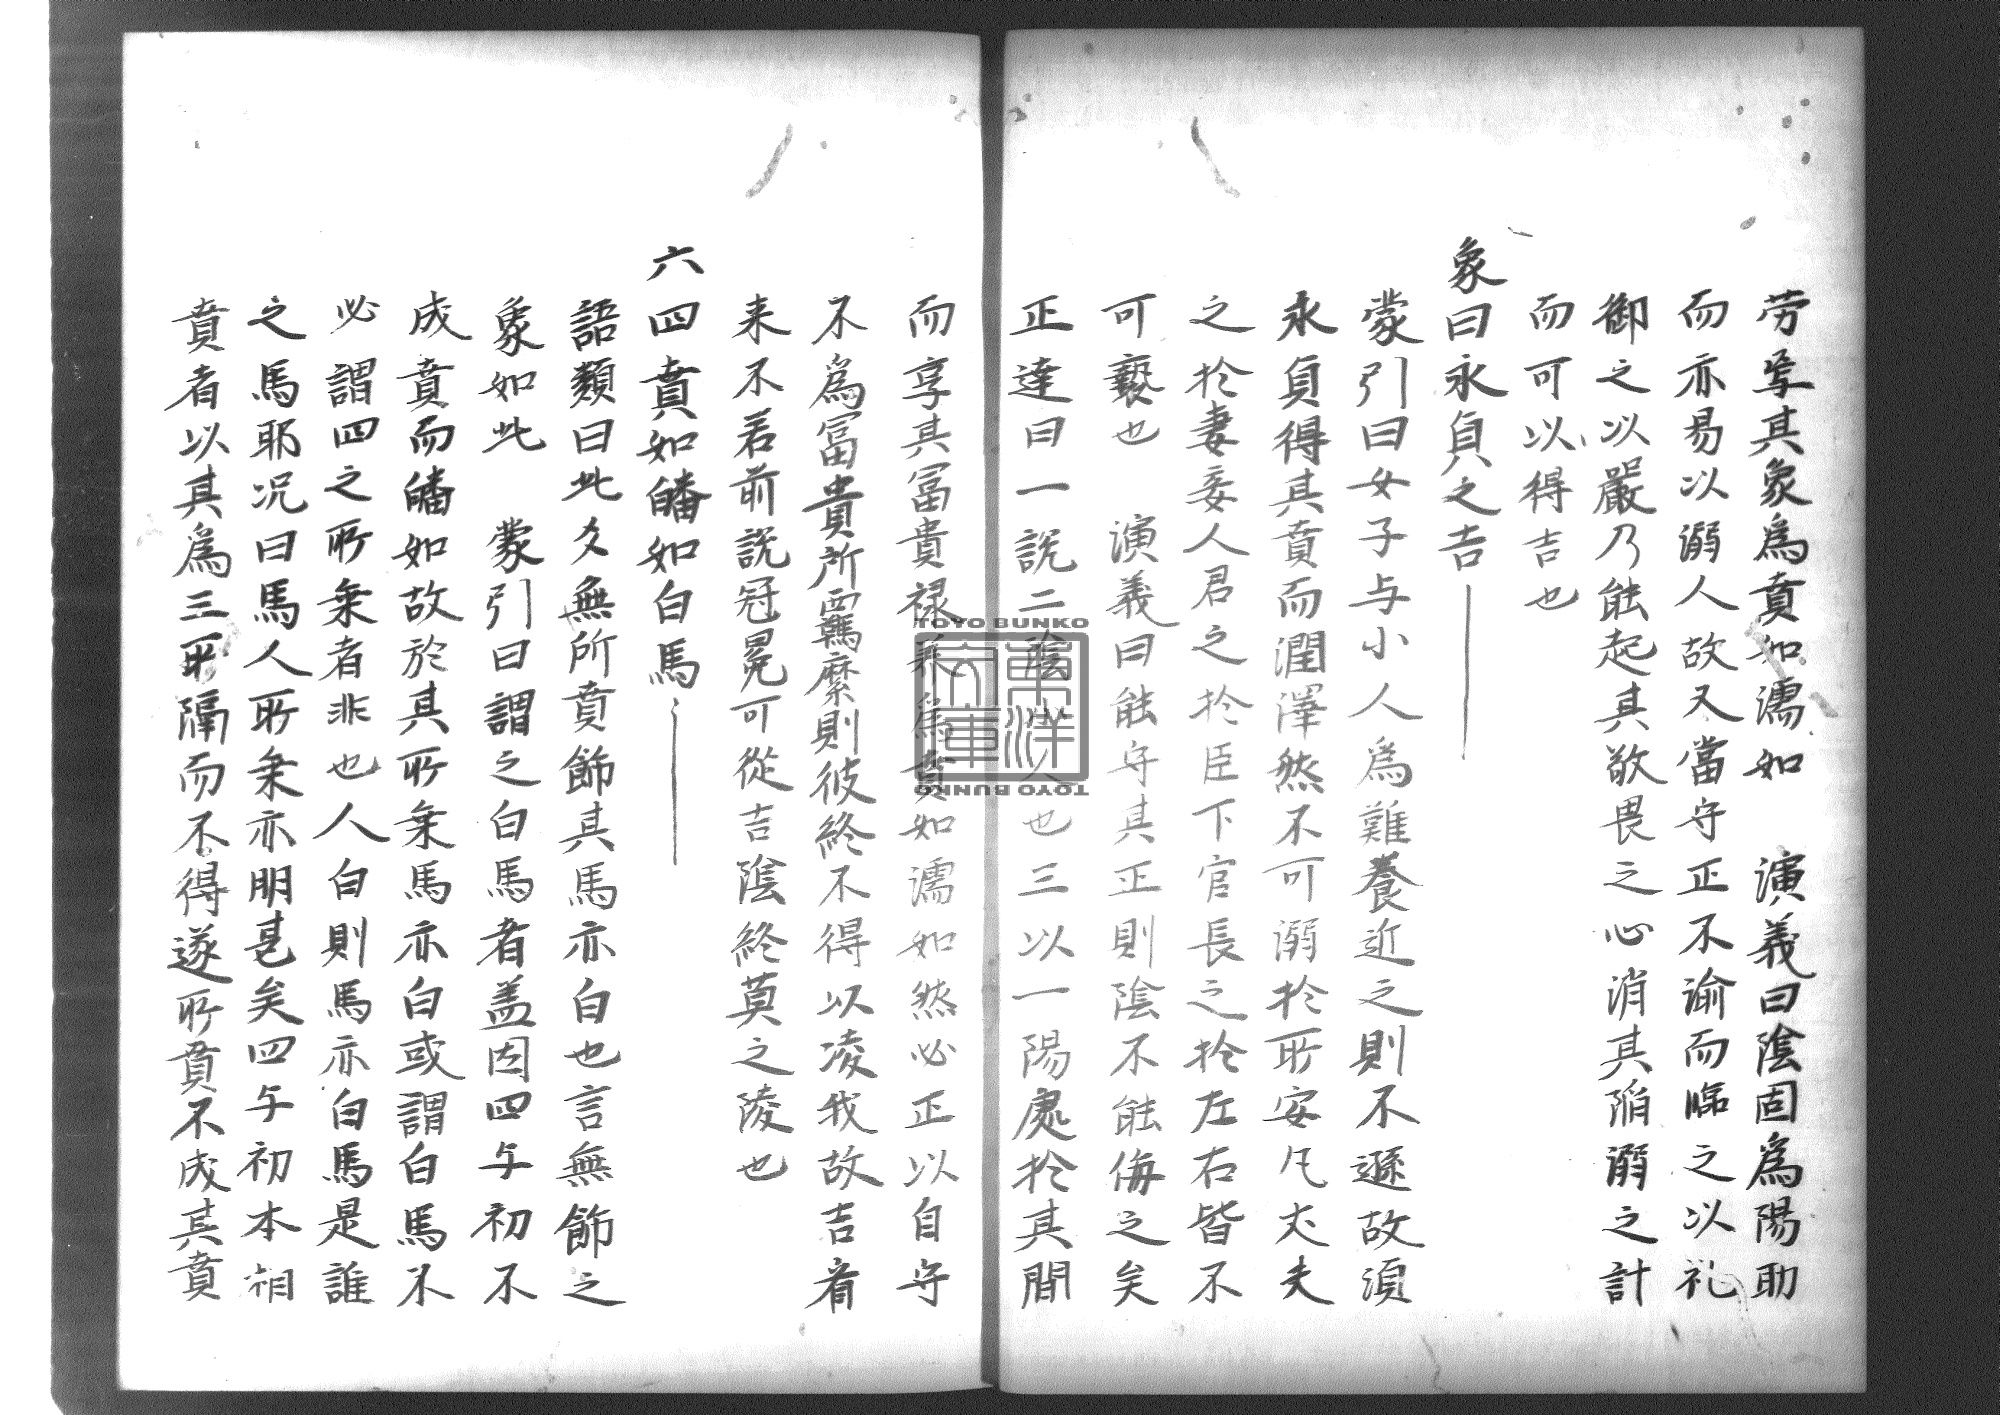 劳㝍其象為賁如濡如　演義曰陰固為陽助
而亦易以溺人故又當守正不渝而臨之以礼
御之以嚴乃能起其敬畏之心消其陷溺之計
而可以得吉也
象曰永貞之吉
蒙引曰女子与小人為難養近之則不遜故須
永貞得其賁而潤澤然不可溺扵所安凡丈夫
之扵妻妾人君之扵臣下官長之扵左右皆不
可褻也　演義曰能守其正則陰不能侮之矣
正達曰一説二陰　人也三以一陽處扵其間
而享其冨貴禄養為賁如濡如然必正以自守
不為冨貴所羈縻則彼終不得以凌我故吉看
来不若前説冠冕可從吉陰終莫之陵也
六四賁如皤如白馬
語類曰此爻無所賁飾其馬亦白也言無飾之
象如此　蒙引曰謂之白馬者盖因四与初不
成賁而皤如故於其所乗馬亦白或謂白馬不
必謂四之所乗者非也人白則馬亦白馬是誰
之馬耶况曰馬人所乗亦明甚矣四与初本相
賁者以其為三所隔而不得遂所賁不成其賁
TOYO BUNKO
東洋文庫
TOYO BUNKO